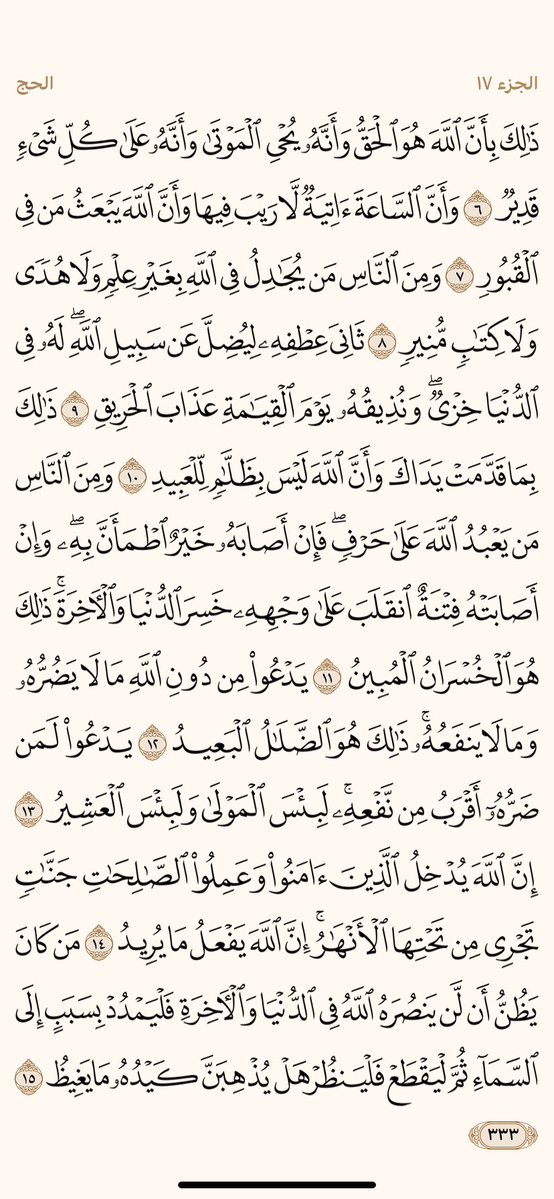 الجزء ١٧
الحج
ذَٰلِكَ بِأَنَّ ٱللَّهَ هُوَ ٱلْحَقُّ وَأَنَّهُۥ يُحْىِ ٱلْمَوْتَىٰ وَأَنَّهُۥ عَلَىٰ كُلِّ شَىْءٍ
قَدِيرٌ ٦ وَأَنَّ ٱلسَّاعَةَ ءَاتِيَةٌ لَّا رَيْبَ فِيهَا وَأَنَّ ٱللَّهَ يَبْعَثُ مَن فِى
ٱلْقُبُورِ ٧ وَمِنَ ٱلنَّاسِ مَن يُجَـٰدِلُ فِى ٱللَّهِ بِغَيْرِ عِلْمٍ وَلَا هُدًى
وَلَا كِتَـٰبٍ مُّنِيرٍ ٨ ثَانِىَ عِطْفِهِۦ لِيُضِلَّ عَن سَبِيلِ ٱللَّهِ ۖ لَهُۥ فِى
ٱلدُّنْيَا خِزْىٌ ۖ وَنُذِيقُهُۥ يَوْمَ ٱلْقِيَـٰمَةِ عَذَابَ ٱلْحَرِيقِ ٩ ذَٰلِكَ
بِمَا قَدَّمَتْ يَدَاكَ وَأَنَّ ٱللَّهَ لَيْسَ بِظَلَّـٰمٍ لِّلْعَبِيدِ ١٠ وَمِنَ ٱلنَّاسِ
مَن يَعْبُدُ ٱللَّهَ عَلَىٰ حَرْفٍ ۖ فَإِنْ أَصَابَهُۥ خَيْرٌ ٱطْمَأَنَّ بِهِۦ ۖ وَإِنْ
أَصَابَتْهُ فِتْنَةٌ ٱنقَلَبَ عَلَىٰ وَجْهِهِۦ خَسِرَ ٱلدُّنْيَا وَٱلْـَٔاخِرَةَ ۚ ذَٰلِكَ
هُوَ ٱلْخُسْرَانُ ٱلْمُبِينُ ١١ يَدْعُوا۟ مِن دُونِ ٱللَّهِ مَا لَا يَضُرُّهُۥ
وَمَا لَا يَنفَعُهُۥ ۚ ذَٰلِكَ هُوَ ٱلضَّلَـٰلُ ٱلْبَعِيدُ ١٢ يَدْعُوا۟ لَمَن
ضَرُّهُۥٓ أَقْرَبُ مِن نَّفْعِهِۦ ۚ لَبِئْسَ ٱلْمَوْلَىٰ وَلَبِئْسَ ٱلْعَشِيرُ ١٣
إِنَّ ٱللَّهَ يُدْخِلُ ٱلَّذِينَ ءَامَنُوا۟ وَعَمِلُوا۟ ٱلصَّـٰلِحَـٰتِ جَنَّـٰتٍ
تَجْرِى مِن تَحْتِهَا ٱلْأَنْهَـٰرُ ۚ إِنَّ ٱللَّهَ يَفْعَلُ مَا يُرِيدُ ١٤ مَن كَانَ
يَظُنُّ أَن لَّن يَنصُرَهُ ٱللَّهُ فِى ٱلدُّنْيَا وَٱلْـَٔاخِرَةِ فَلْيَمْدُدْ بِسَبَبٍ إِلَى
ٱلسَّمَآءِ ثُمَّ لْيَقْطَعْ فَلْيَنظُرْ هَلْ يُذْهِبَنَّ كَيْدُهُۥ مَا يَغِيظُ ١٥
٣٣٣